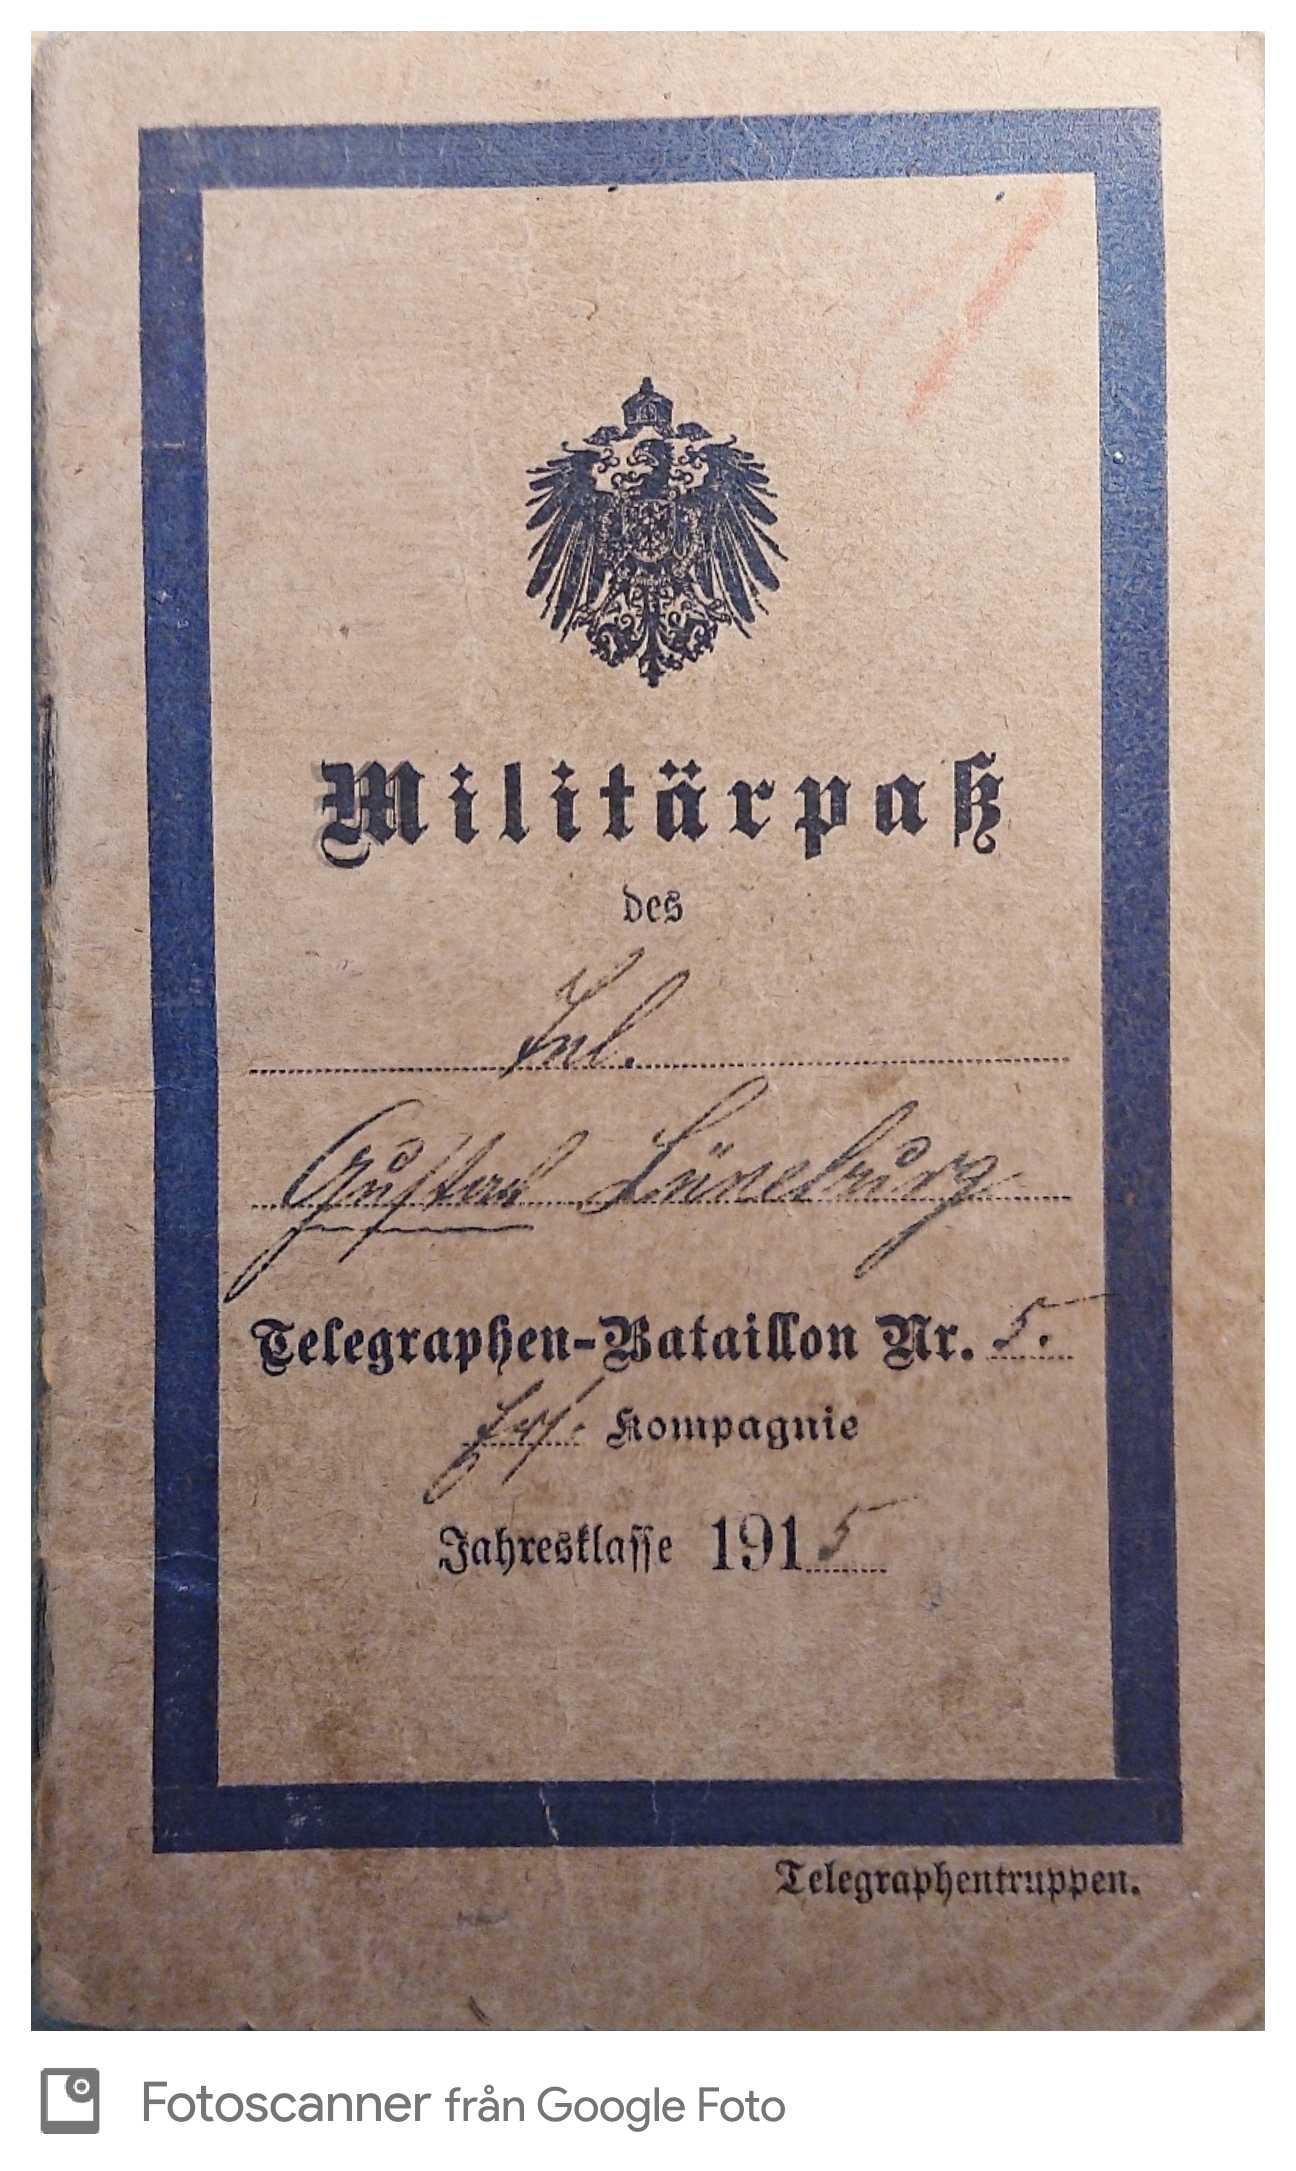 Militärpaß
des
Tel.
Gustav Lüneburg
Telegraphen-Bataillon Nr. 5.
Ers. Kompagnie
Jahresklasse 1915
Telegraphentruppen.
Fotoscanner från Google Foto